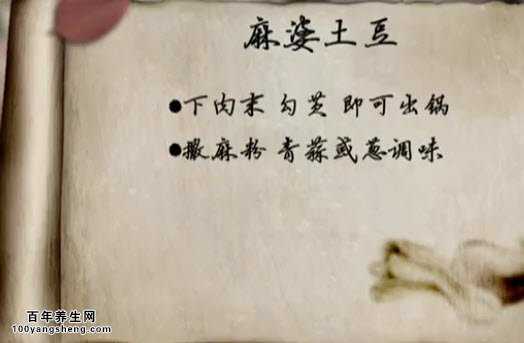 麻婆土豆
●下肉末 勾芡 即可出锅
●撒麻粉 青蒜或葱调味
百年养生网
100yangsheng.com